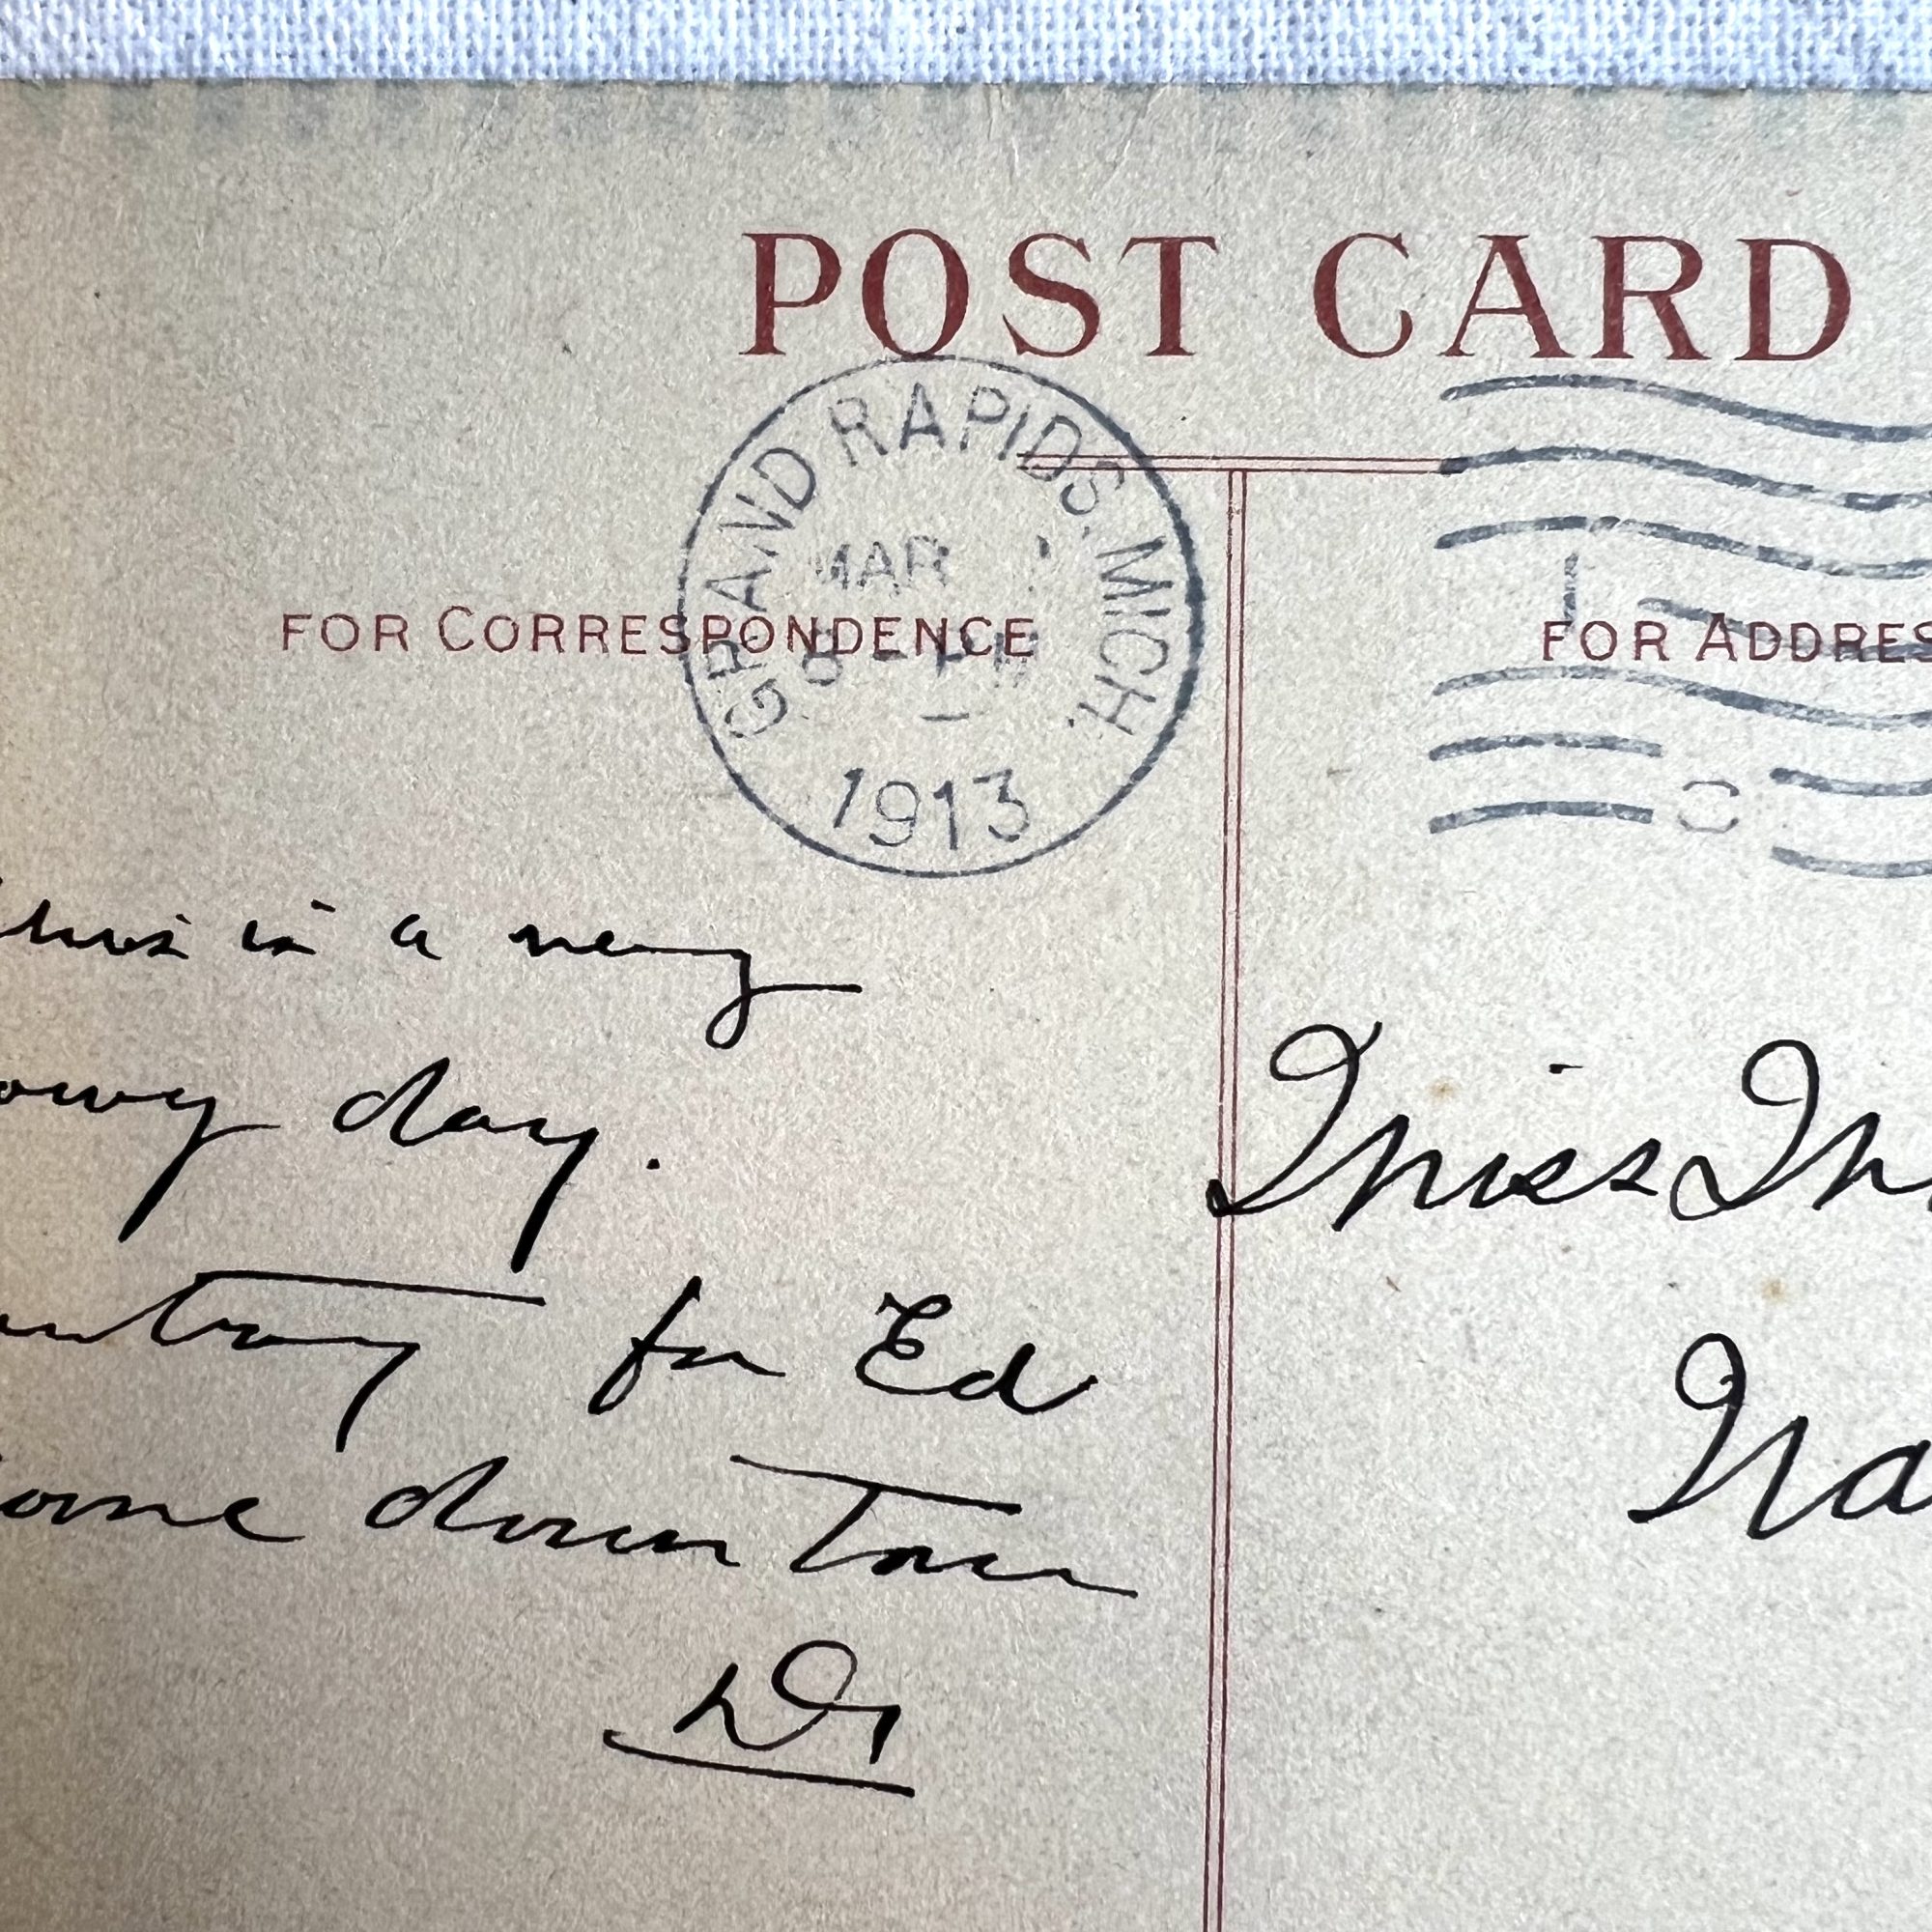 POST CARD
GRAND RAPIDS, MICH.
MAR
8 - PM
1913
FOR CORRESPONDENCE
FOR ADDRES
is a very
owy day.
for Ed
ome down Town
Miss M